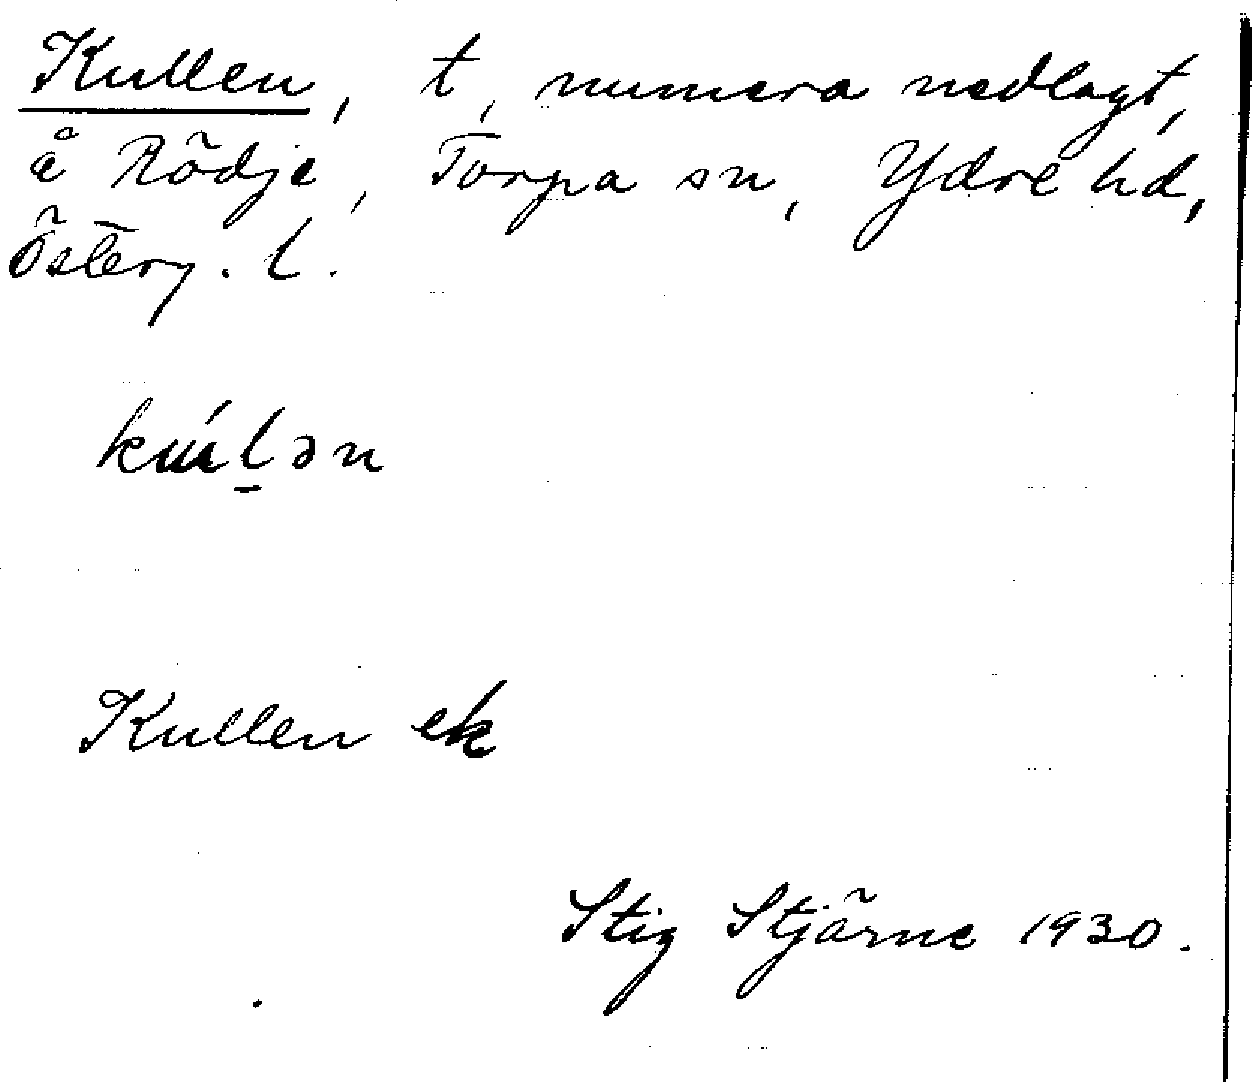 Kullen, t, numera nedlagt,
å Rödje, Torpa sn, Ydre hd,
Österg. l.
kúl̠ən
Kullen ek
Stig Stjärne 1930.